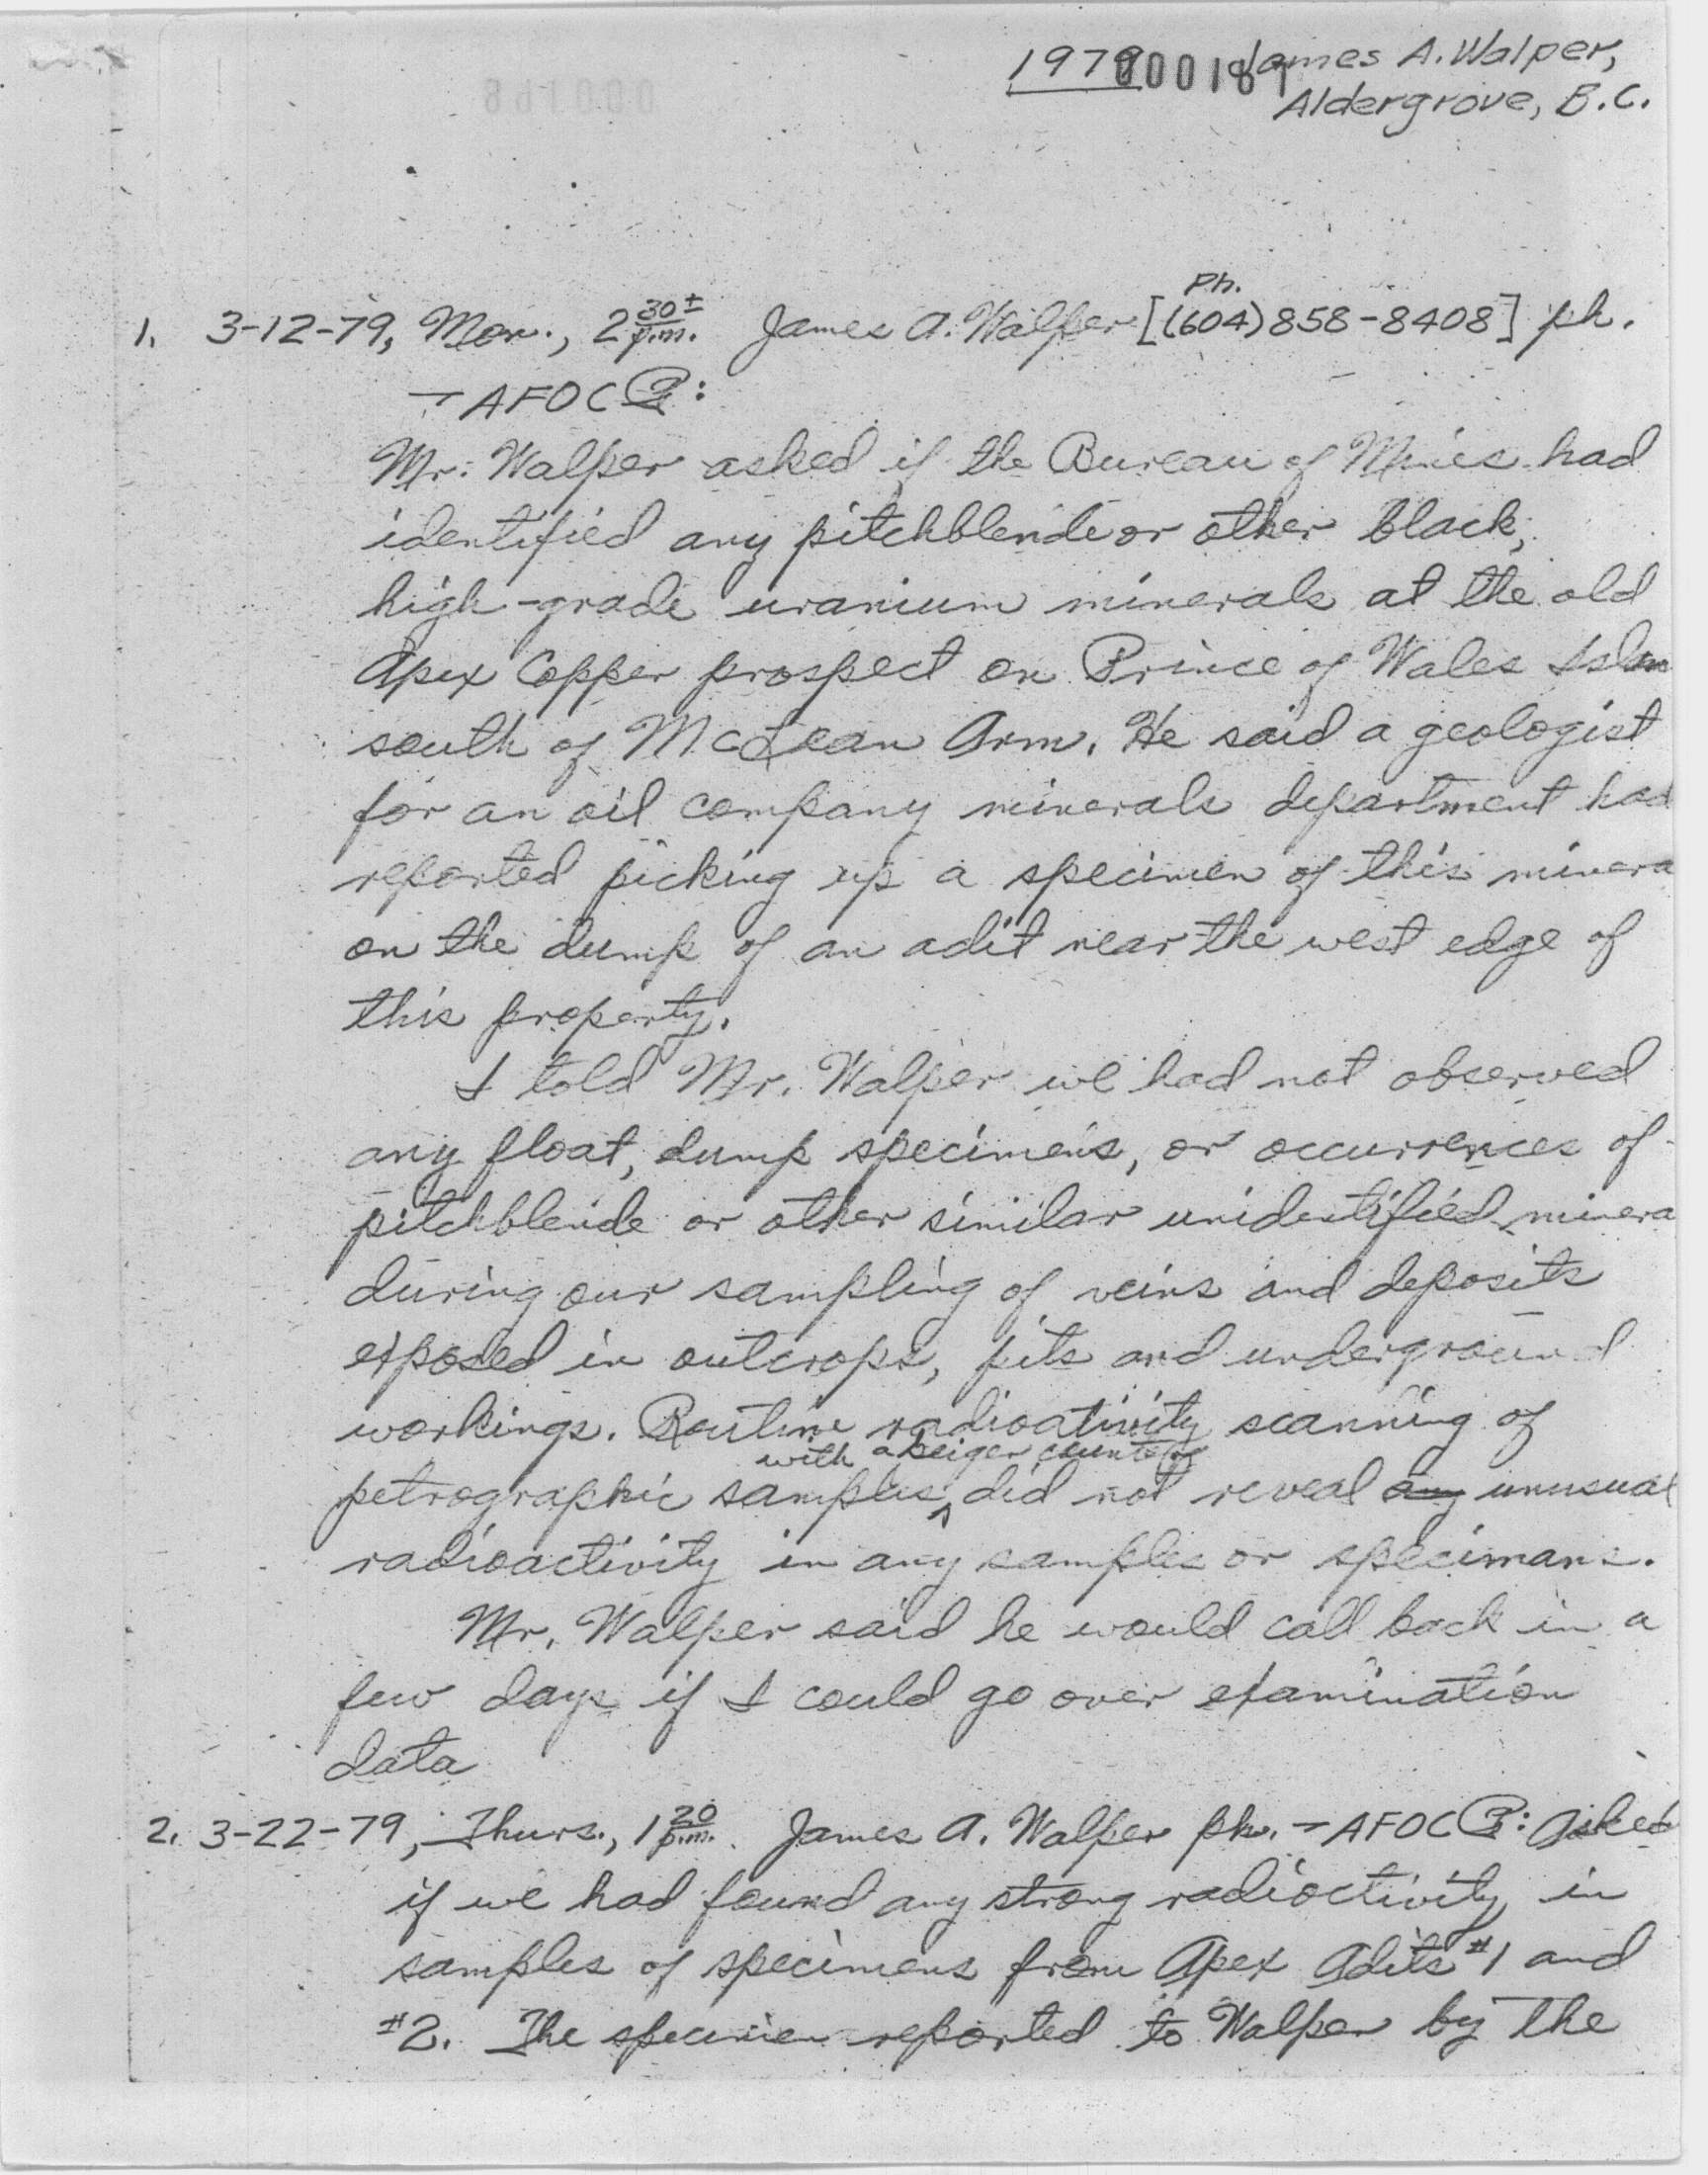 1979 000187 James A. Walper,
Aldergrove, B.C.
000188
Ph.
1. 3-12-79, Mon., 2 30± p.m. James A. Walper [(604) 858-8408] ph.
→ AFOC :
Mr. Walper asked if the Bureau of Mines had
identified any pitchblende or other black,
high-grade uranium minerals at the old
Apex Copper prospect on Prince of Wales Islan
south of McLean Arm. He said a geologist
for an oil company minerals department had
reported picking up a specimen of this minera
on the dump of an adit near the west edge of
this property.
I told Mr. Walper we had not observed
any float, dump specimens, or occurrences of
pitchblende or other similar unidentified minera
during our sampling of veins and deposits
exposed in outcrops, pits and underground
workings. Routine radioativity scanning of
with a Geiger counter
petrographic samples ^ did not reveal any unusual
radioactivity in any samples or specimans.
Mr. Walper said he would call back in a
few days if I could go over examination
data
2. 3-22-79, Thurs., 1 20 p.m. James A. Walper ph. → AFOC : Asked
if we had found any strong radioctivity in
samples of specimens from Apex Adits #1 and
#2. The specimen reported to Walper by the